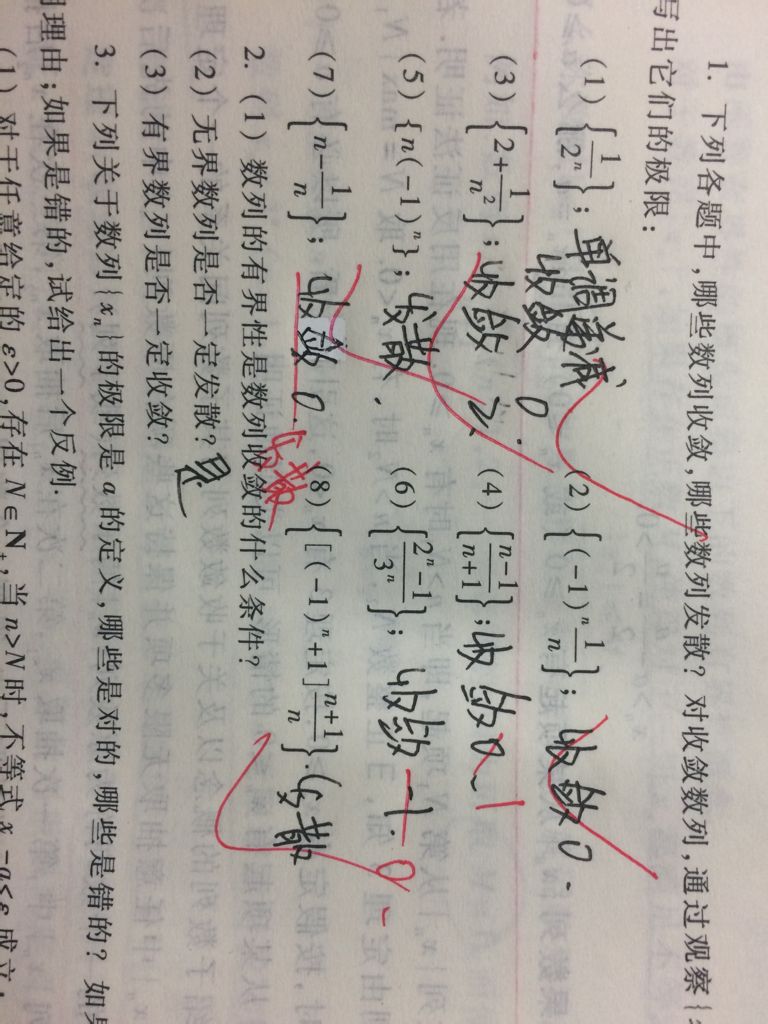 1. 下列各题中,哪些数列收敛,哪些数列发散? 对收敛数列,通过观察{
写出它们的极限:
(1) {1/2ⁿ}; 单调递减 收敛 0. (2) {(-1)ⁿ 1/n}; 收敛 0.
(3) {2+1/n²}; 收敛 2. (4) {(n-1)/(n+1)}; 收敛 1
(5) {n(-1)ⁿ}; 发散. (6) {(2ⁿ-1)/3ⁿ}; 收敛 -1. 0
(7) {n-1/n}; 收敛 0. 发散 (8) {[(-1)ⁿ+1](n+1)/n}. 发散
2. (1) 数列的有界性是数列收敛的什么条件?
(2) 无界数列是否一定发散? 是
(3) 有界数列是否一定收敛?
3. 下列关于数列{xₙ}的极限是 a 的定义,哪些是对的,哪些是错的? 如果
理由;如果是错的,试给出一个反例.
(1) 对于任意给定的 ε>0,存在 N∈N₊,当 n>N 时,不等式 xₙ-a<ε 成立,